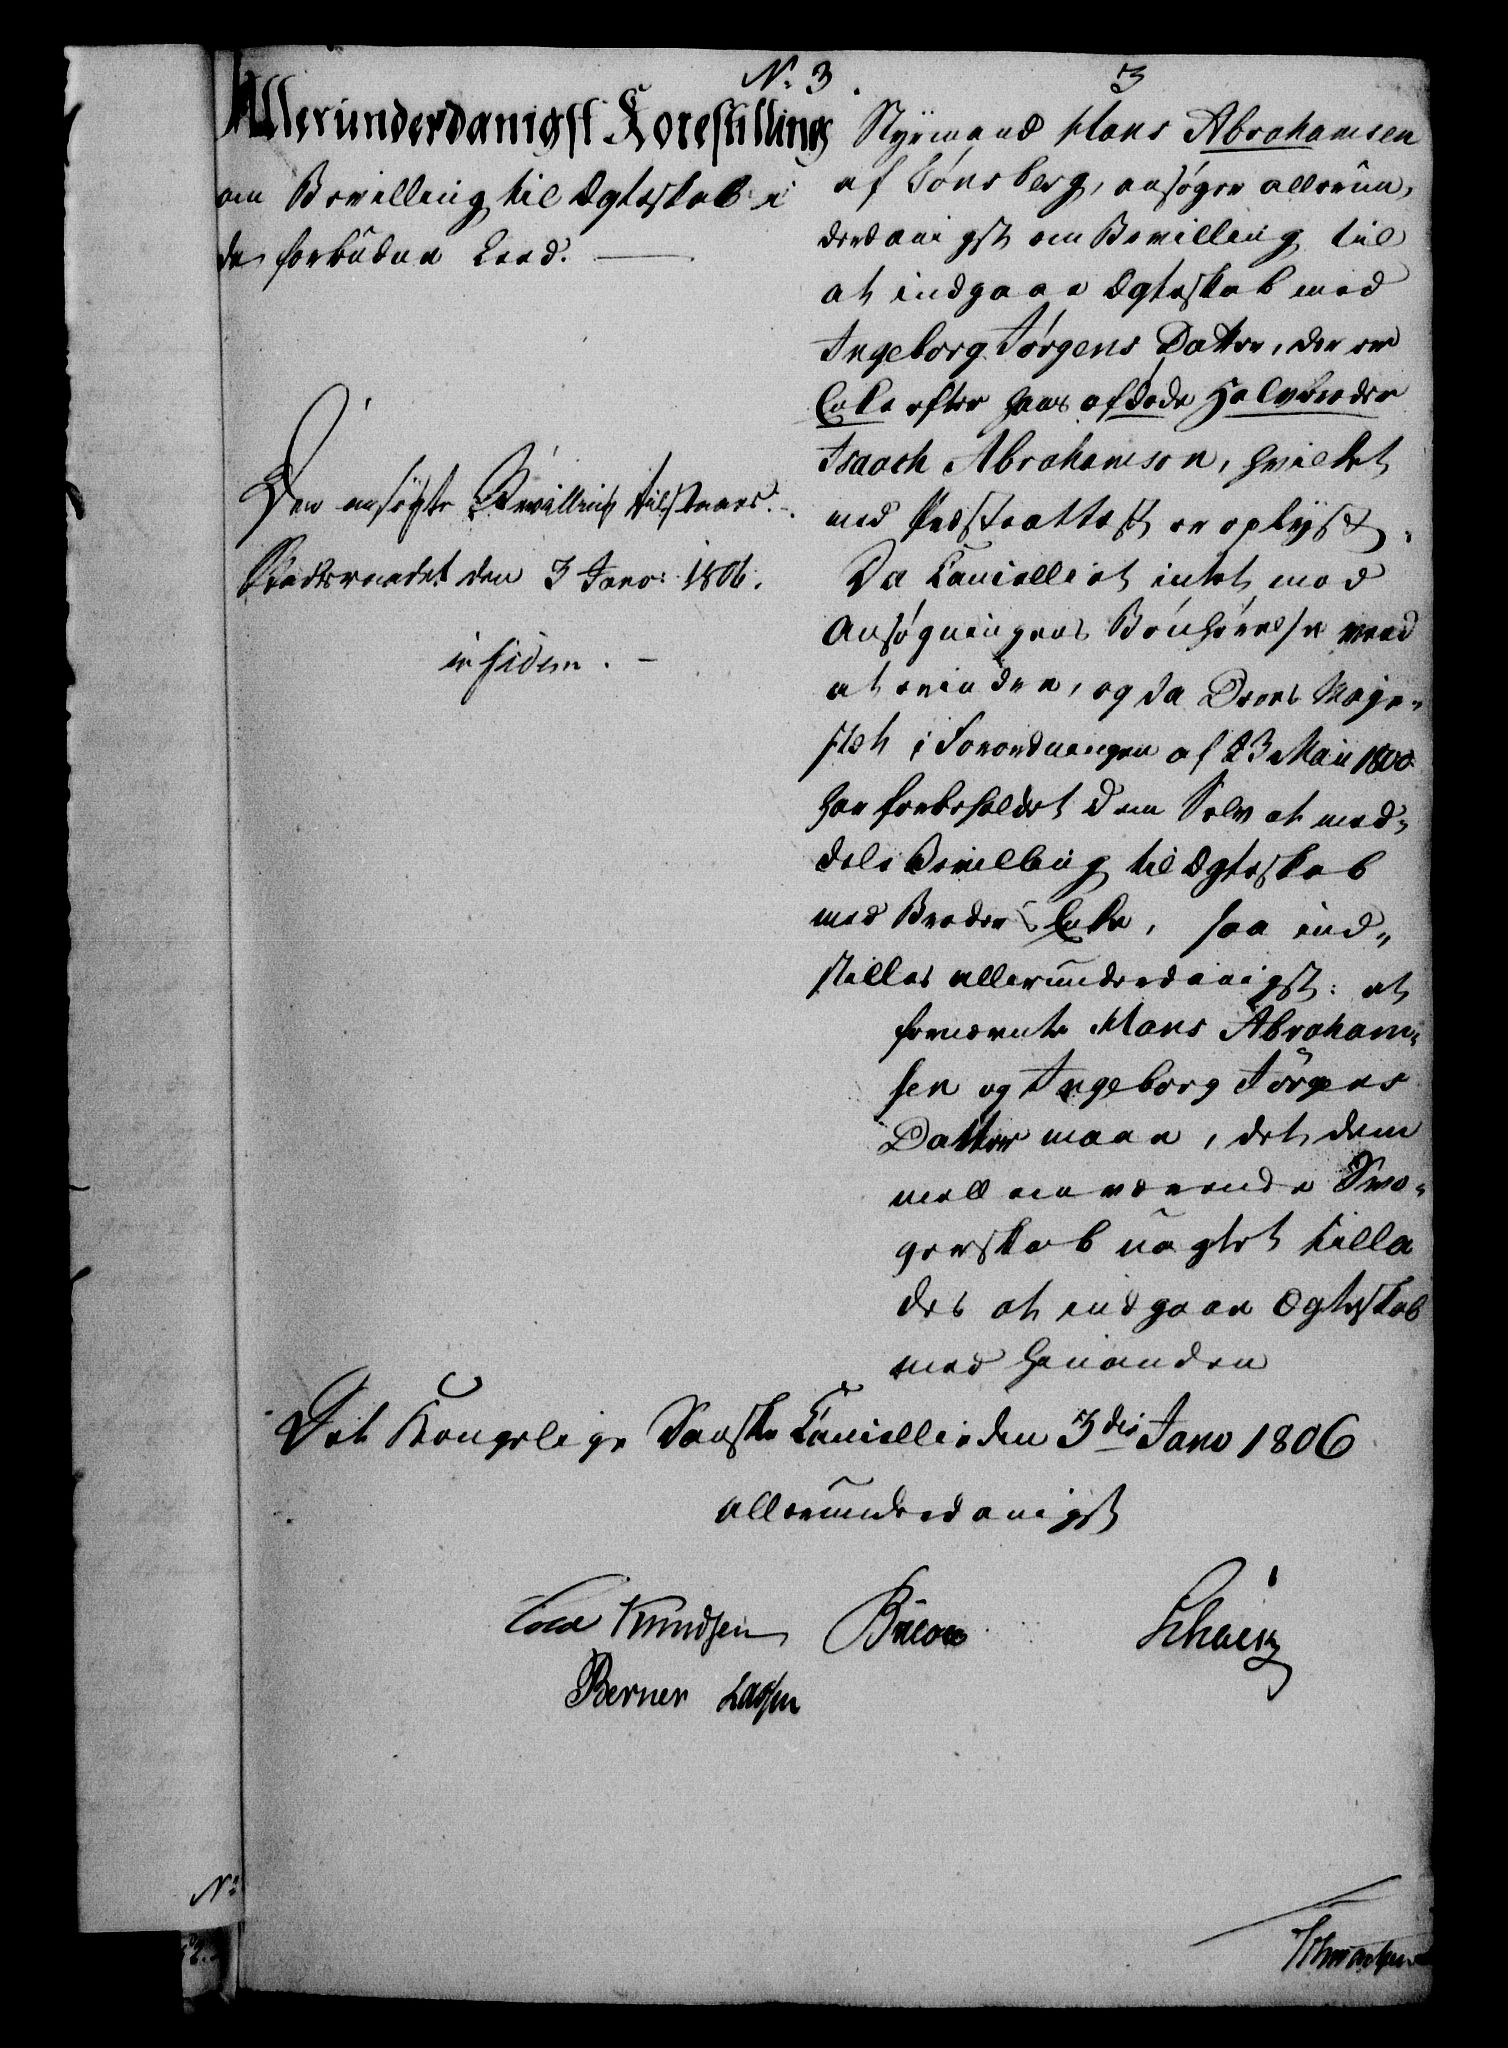 No: 3.
3
Allerunderdanigst Forestilling
om Bevilling til Ægteskab i
de forbudne Leed.
Den ansøgte Bevilling tilstaaes.
Stadtsraadet den 3 Janr: 1806.
in fidem.
Styrmand Hans Abrahamsen
af Tønsberg, ansøger allerun,
derdanigst om Bevilling til
at indgaae Ægteskab med
Ingeborg Jørgens Datter, der er
Enke efter hans afdøde Halvbroder
Isaach Abrahamson, hvilket
med Præsteattest er oplyst.
Da Cancelliet intet mod
Ansøgningens Bønhørelse veed
at erindre, og da Deres Maje-
stæt i Forordningen af 23 Maii 1800
har forbeholdet Dem Selv at med-
dele Bevilling til Ægteskab
med Broders Enke, saa ind-
stilles allerunderdanigst: at
fornævnte Hans Abraham-
sen og Ingeborg Jørgens
Datter maae, det dem
mellem værende Svo-
gerskab uagtet tilla
des at indgaae Ægteskab
med hinanden
Det Kongelige Danske Cancellie den 3die Janv 1806
allerunderdanigst
Cold Knudsen Bülow
Berner Lassen
No: